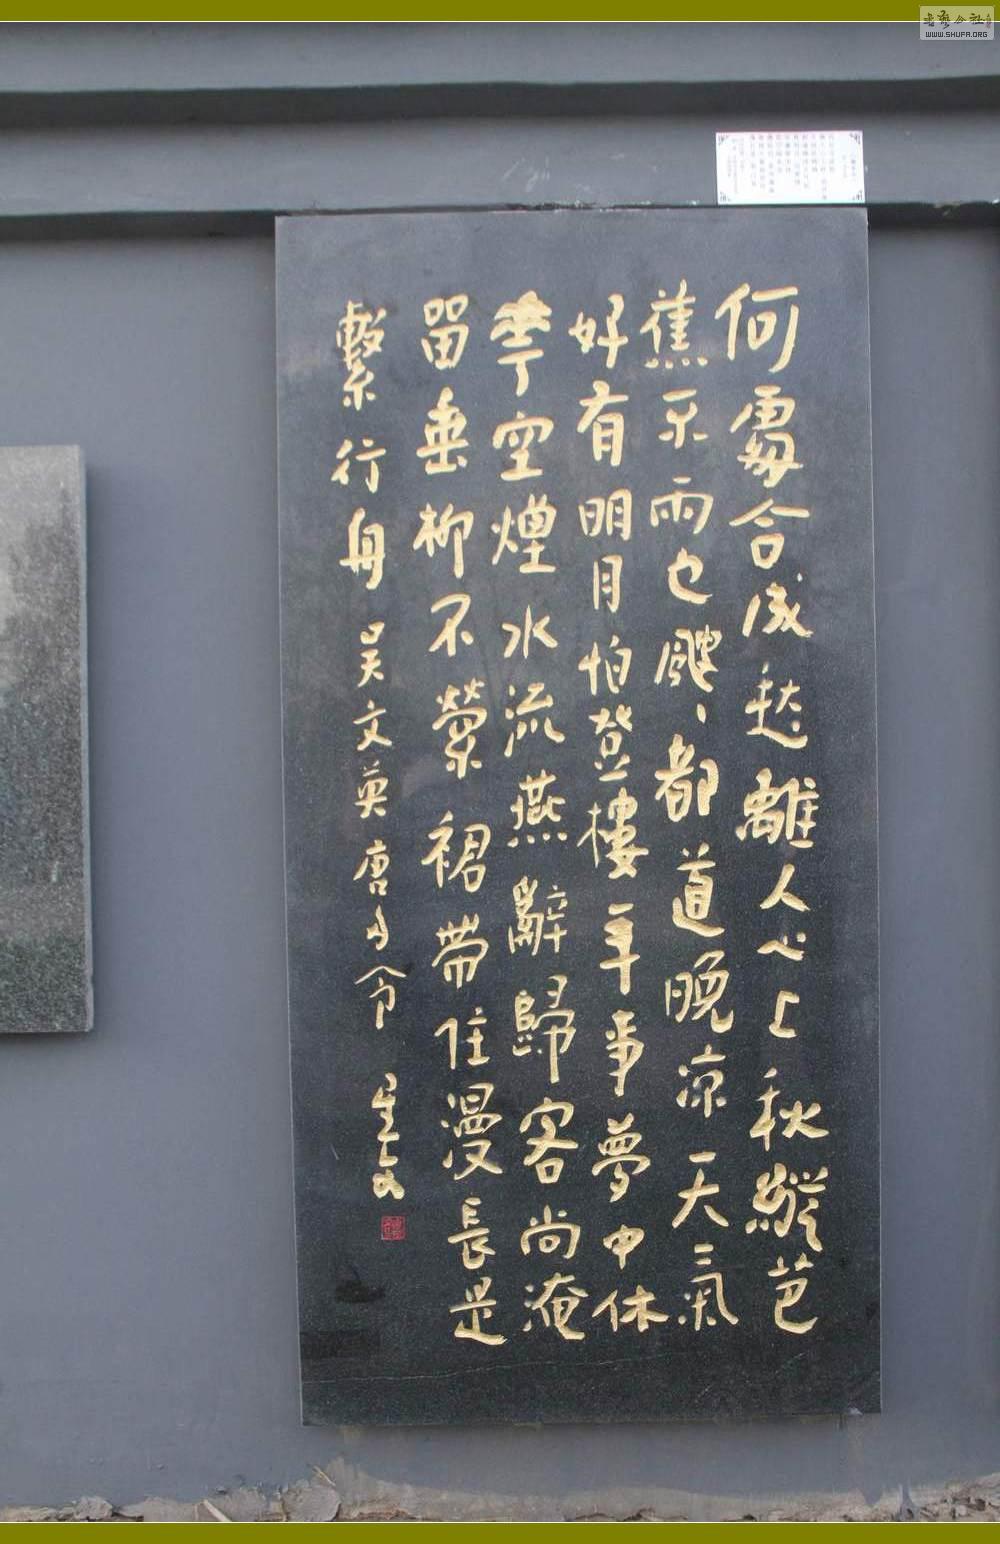 何處合成愁離人心上秋縱芭
蕉不雨也颼〻都道晚凉天氣
好有明月怕登樓年事夢中休
華空煙水流燕辭歸客尚淹
留垂柳不縈裙帶住漫長是
繫行舟 吴文英唐多令
WWW.SHUFA.ORG